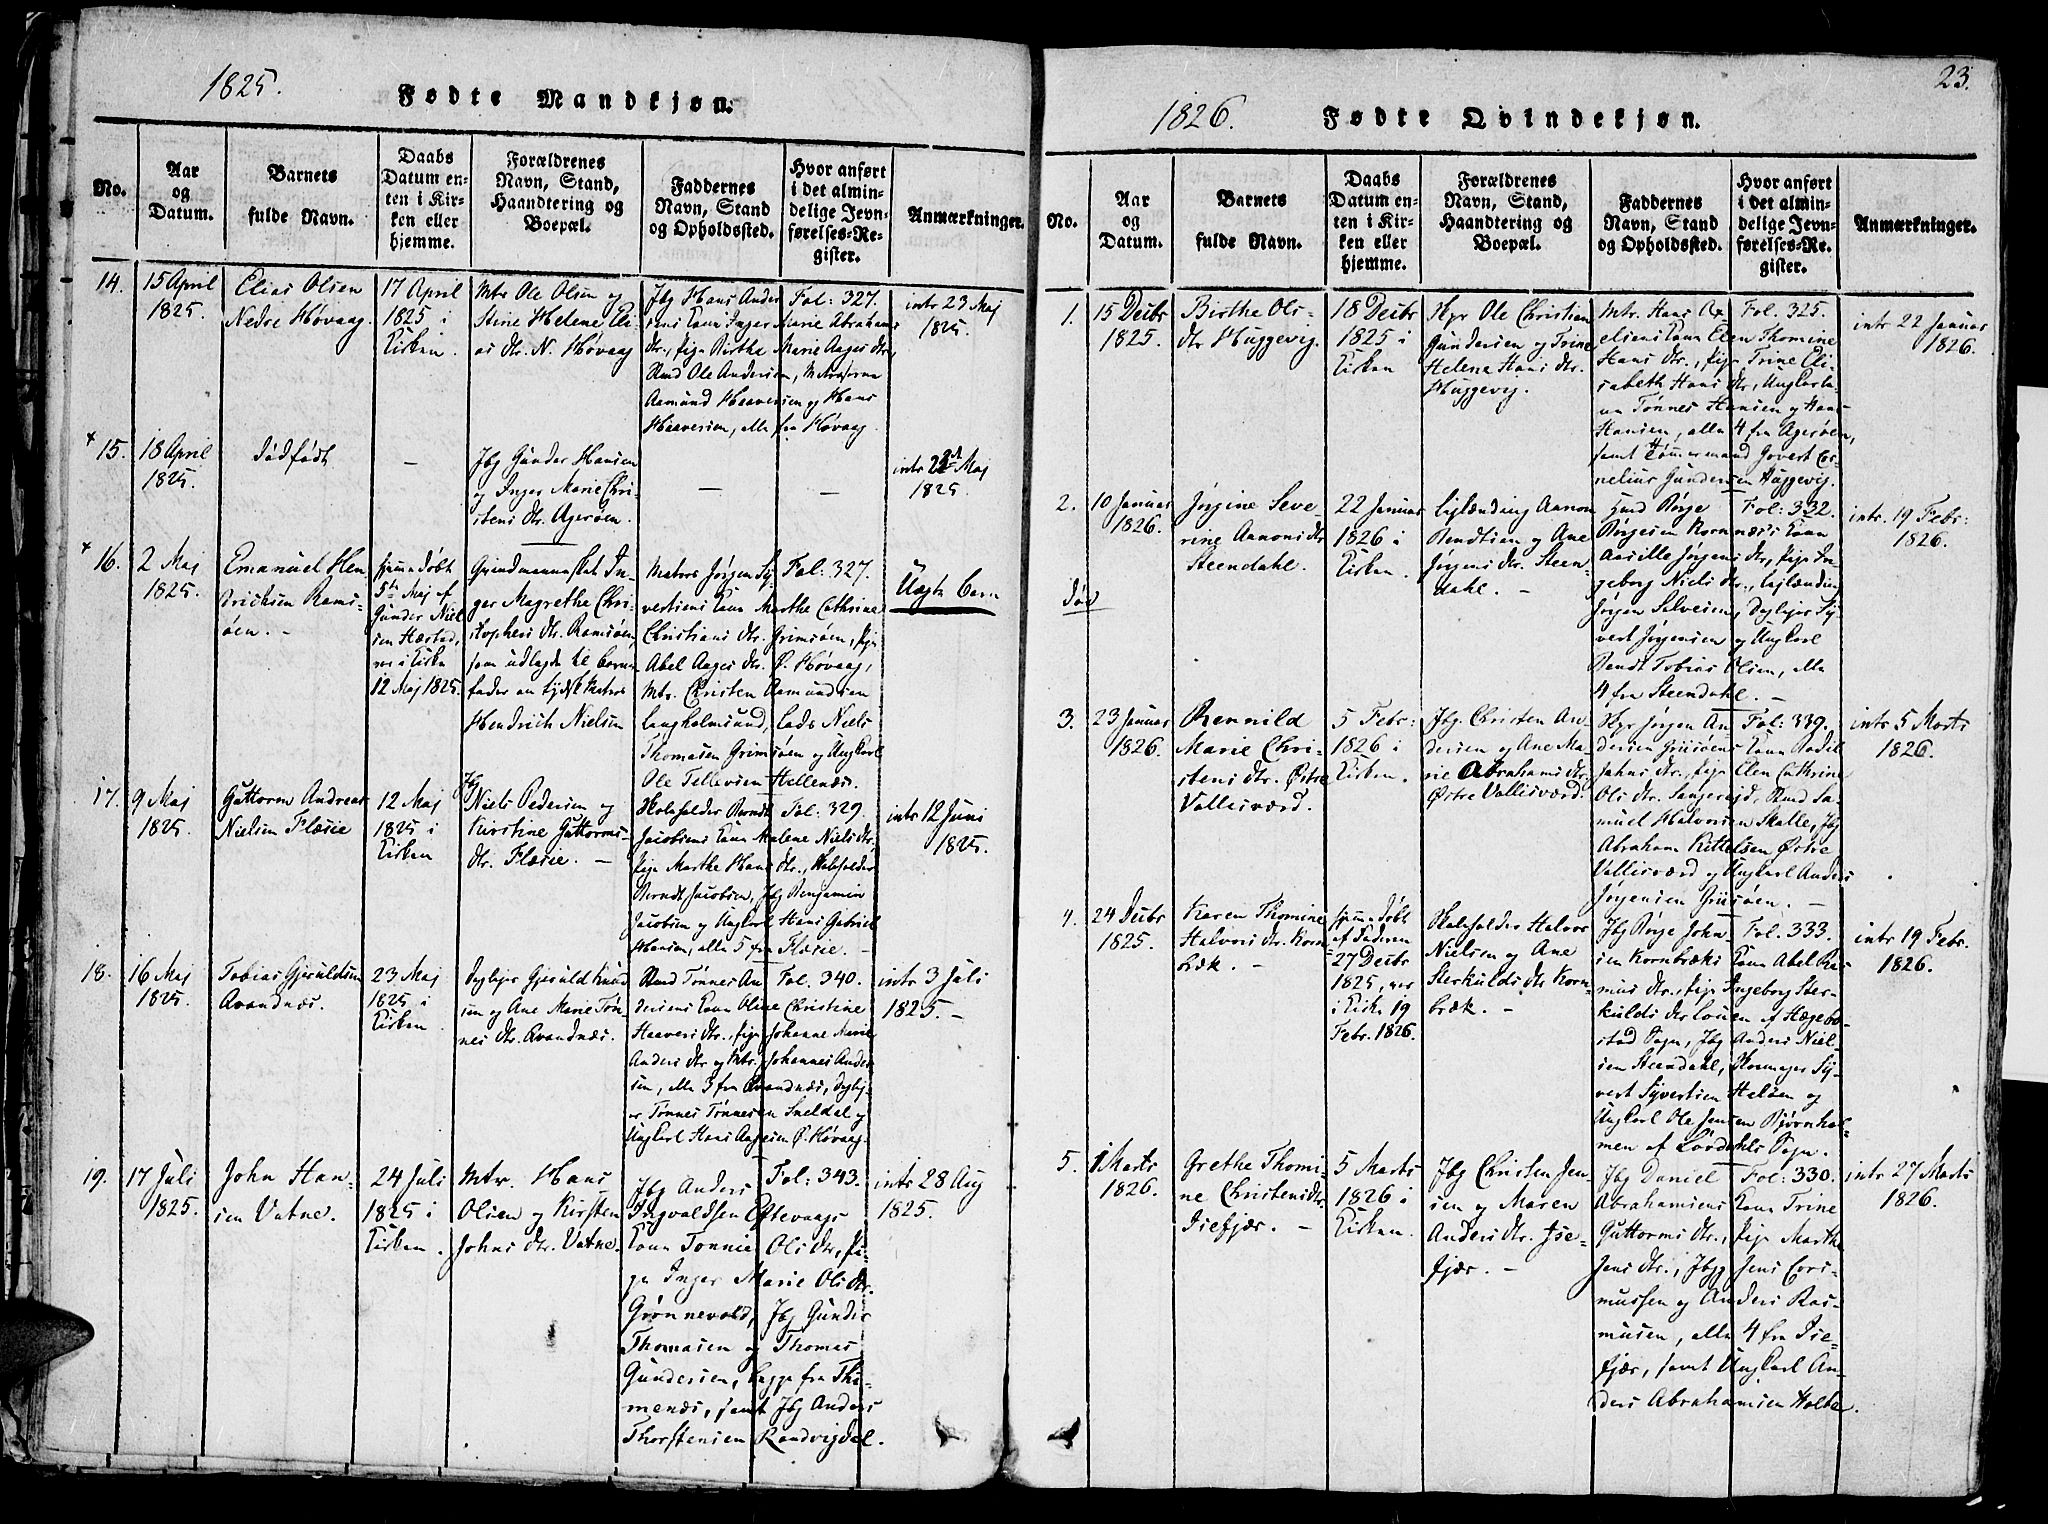 1825.
Fødte Mandkjøn.
No.
Aar
og
Datum.
Barnets
fulde Navn.
Daabs
Datum en-
ten i Kir-
ken eller
hjemme.
Forældrenes
Navn, Stand,
Haandtering og
Boepæl.
Faddernes
Navn, Stand
og Opholdssted.
Hvor anført
i det almin-
delige Jevn-
førelses-Re-
gister.
Anmærkninger.
14.
15 April
1825.
Elias Olsen
Nedre Høvaag.
17 April
1825 i
Kirken.
Mtr Ole Olsen og
Stine Helene Eli-
as dtr. N. Høvaag
Jbg Hans Ander
sens Kone Inger Marie Abrahams
dtr., Pige Birthe Marie Aages dtr,
Smd Ole Andersen, Matroserne
Aamund Haaversen og Hans
Haaversen, alle fra Høvaag.
Fol: 327.
intr 23 Maj
1825.
15.
18 April
1825.
Dødfødt
–
Jbg Gunder Hansen
og Inger Marie Chri-
stens dtr. Agerøen.
–
–
intr 22 Maj
1825.
16.
2 Maj
1825.
Emanuel Hen
drichsen Rams-
øen. –
hjemmedøbt
5te Maj af
Gunder Niel
sen Hæstad,
var i Kirken
12 Maj 1825.
Inger Magrethe Chri-
stophers dtr. Ramsøen,
som udlagde til Barne-
fader en tydsk Matros
Hendrich Nielsen
Matros Jørgen Sy-
vertsens Kone Marthe Cathrine
Christians dtr. Grimsøen, Pige
Abel Aages dtr. Ø. Høvaag,
Mtr. Christen Aamundsen
Langholmsund, Lods Niels
Thomasen Grimsøen og Ungkarl
Ole Tellevsen Hellenæs.
Fol: 327.
Uægte Barn
17.
9 Maj
1825.
Guttorm Andreas
Nielsen Flæsie
12 Maj
1825 i
Kirken
Jbg
Niels Pedersen og
Kirstine Guttorms-
dtr. Flæsie. –
Skoleholder Berndt
Jacobsens Kone Malene Niels dtr,
Pige Marthe Hans dtr., Skoleholder
Berndt Jacobsen, Jbg Benjamin
Jacobsen og Ungkarl Hans Gabriel
Hansen, alle 5 fra Flæsie. –
Fol: 329.
intr 12 Juni
1825.
18.
16 Maj
1825.
Tobias Gjeruldsen
Qvandnæs.
23 Maj
1825 i
Kirken.
Dagleier Gjeruld Knud
sen og Ane Marie Tøn-
nes dtr. Qvandnæs.
Smd Tønnes An
dersens Kone Oline Christine
Haavers dtr., Pige Johanne Marie
Anders dtr og Mtr. Johannes Ander
sen, alle 3 fra Qvandnæs, Daglej-
er Tønnes Tønnesen Sneldal og
Ungkarl Hans Aagesen Ø. Høvaag.
Fol: 340.
intr 3 Juli
1825. –
19.
17 Juli
1825.
John Han-
sen Vatne.
24 Juli
1825 i
Kirken.
Mtr. Hans
Olsen og Kirsten
Johns dtr. Vatne.
Jbg Anders
Ingvaldsen Eftevaags
Kone Tønnie Ols dtr, Pi-
ge Inger Marie Ols dtr.
Grønnevold, Jbg Gunder
Thomasen og Thomas
Gundersen, begge fra Thi-
menæs, samt Jbg Anders
Thorstensen Randvigdal.
Fol: 343.
intr 28 Aug
1825.
23.
1826.
Fødte Qvindekjøn.
No.
Aar
og
Datum.
Barnets
fulde Navn.
Daabs
Datum en-
ten i Kir-
ken eller
hjemme.
Forældrenes
Navn, Stand,
Haandtering og
Boepæl.
Faddernes
Navn, Stand
og Opholdssted.
Hvor anført
i det almin-
delige Jevn-
førelses-Re-
gister.
Anmærkninger.
1.
15 Decbr
1825.
Birthe Ols-
dtr Huggevig.
18 Decbr
1825 i
Kirken
Skpr Ole Christian
Gundersen og Trine
Helene Hans dtr.
Huggevig.
Mtr. Hans Ax
elsens Kone Elen Thomine
Hans dtr., Pige Trine Eli-
sabeth Hans dtr, Ungkarle-
ne Tønnes Hansen og Hans
Hansen, alle 4 fra Agerøen,
samt Tømmermand Govert Cor-
nelius Gundersen Huggevig.
Fol. 325.
intr 22 Januar
1826.
2.
Død
10 Januar
1826.
Jørgine Seve-
rine Aanons dtr
Steendahl.
22 Januar
1826 i
Kirken.
Leilænding Aanon
Bendtsen og Ane
Jørgens dtr. Steen-
dahl. –
Smd Børge
Børgesen Kornnæs's Kone
Aasille Jørgens dtr, Pige In-
geborg Niels dtr., Leilænding
Jørgen Salvesen, Daglejer Sy-
vert Jørgensen og Ungkarl
Bendt Tobias Olsen, alle
4 fra Steendahl. –
Fol: 332.
intr. 19 Febr:
1826.
3.
23 Januar
1826.
Rennild
Marie Chri-
stens dtr. Østre
Vallisværd.
5 Febr:
1826 i
Kirken.
Jbg. Christen An-
dersen og Ane Ma-
rie Abrahams dtr.
Østre Vallisværd.
Skpr Jørgen An-
dersen Griisøens Kone Bodil
Jahns dtr., Pige Elen Cathrine
Ols dtr. Sangereid, Smd Sa-
muel Halvorsen Skalle, Jbg
Abraham Kittelsen Østre
Vallisværd og Ungkarl Anders
Jørgensen Griisøen. –
Fol: 339.
intr 5 Marts
1826.
4.
24 Decbr
1825.
Karen Thomine
Halvors dtr. Korn-
bræk. –
hjemmedøbt
af Faderen
27 Decbr
1825, var
i Kirk. 19
Febr. 1826.
Skoleholder Halvor
Nielsen og Ane
Sterkulds dtr Korn-
bræk. –
Jbg Børge John-
sen Kornbræks Kone Abel Ras
mus dtr., Pige Ingeborg Ster-
kulds dtr Louen af Hægebo-
stad Sogn, Jbg Anders Niel-
sen Steendahl, Skomager Sy-
vert Syvertsen Halsøen og
Ungkarl Ole Jensen Bjørnhol-
men af Lordahls Sogn.
Fol: 333.
intr 19 Febr.
1826.
5.
1 Marts
1826.
Grethe Thomi-
ne Christens dtr.
Isefjær. –
5 Marts
1826 i
Kirken
Jbg Christen Jen-
sen og Maren
Anders dtr. Ise-
fjær. –
Jbg Daniel
Abrahamsens Kone Trine
Guttorms dtr., Pige Marthe
Jens dtr., Jbgg Jens Cors-
mussen og Anders Ras-
musen, alle 4 fra Ise-
fjær, samt Ungkarl An-
ders Abrahamsen Holbe.
Fol: 330.
intr 27 Marts
1826.